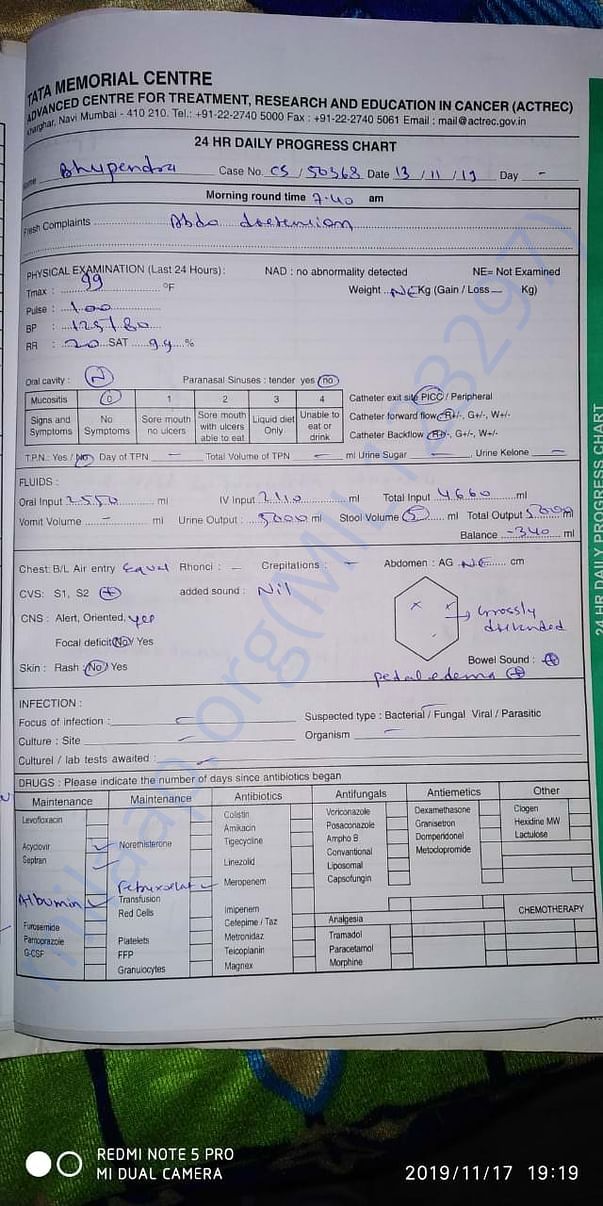 TATA MEMORIAL CENTRE
ADVANCED CENTRE FOR TREATMENT, RESEARCH AND EDUCATION IN CANCER (ACTREC)
Kharghar, Navi Mumbai - 410 210. Tel.: +91-22-2740 5000 Fax : +91-22-2740 5061 Email : mail@actrec.gov.in
24 HR DAILY PROGRESS CHART
Name Bhupendra Case No. CS / 50368 Date 13 / 11 / 19 Day -
Morning round time 7.40 am
Fresh Complaints Abdo distension
PHYSICAL EXAMINATION (Last 24 Hours): NAD : no abnormality detected NE= Not Examined
Tmax : 99 °F Weight NE Kg (Gain / Loss — Kg)
Pulse : 100
BP : 125/80
RR : 20 SAT 99 %
Oral cavity : N Paranasal Sinuses : tender yes / no
Mucositis 0 1 2 3 4 Catheter exit site PICC / Peripheral
Signs and Symptoms No Symptoms Sore mouth no ulcers Sore mouth with ulcers able to eat Liquid diet Only Unable to eat or drink Catheter forward flow R+/-, G+/-, W+/-
Catheter Backflow R+/-, G+/-, W+/-
T.P.N.: Yes / No Day of TPN — Total Volume of TPN — ml Urine Sugar — , Urine Kelone —
FLUIDS :
Oral Input 2550 ml IV Input 2110 ml Total Input 4660 ml
Vomit Volume - ml Urine Output : 5000 ml Stool Volume 5 ml Total Output 5000 ml
Balance -340 ml
Chest: B/L Air entry Equal Rhonci : — Crepitations : — Abdomen : AG NE cm
CVS: S1, S2 + added sound : Nil
CNS : Alert, Oriented, yes
Grossly distended
Focal deficit No / Yes
Skin : Rash : No / Yes Bowel Sound : +
pedal edema +
INFECTION :
Focus of infection : — Suspected type : Bacterial / Fungal Viral / Parasitic
Culture : Site — Organism —
Culturel / lab tests awaited : -
DRUGS : Please indicate the number of days since antibiotics began
Maintenance Maintenance Antibiotics Antifungals Antiemetics Other
Levofloxacin Colistin Voriconazole Dexamethasone Clogen
Amikacin Posaconazole Granisetron Hexidine MW
Acyclovir ✓ Norethisterone Tigecycline Ampho B Domperidonel Lactulose
Septran ✓ Linezolid Convantional Metoclopromide
Liposomal
Febuxostat ✓ Meropenem Capsofungin
Albumin ✓ Transfusion
Red Cells Imipenem CHEMOTHERAPY
Furosemide Cefepime / Taz Analgesia
Pantoprazole Platelets Metronidaz Tramadol
G-CSF FFP Teicoplanin Paracetamol
Granulocytes Magnex Morphine
24 HR DAILY PROGRESS CHART
REDMI NOTE 5 PRO
MI DUAL CAMERA
2019/11/17 19:19